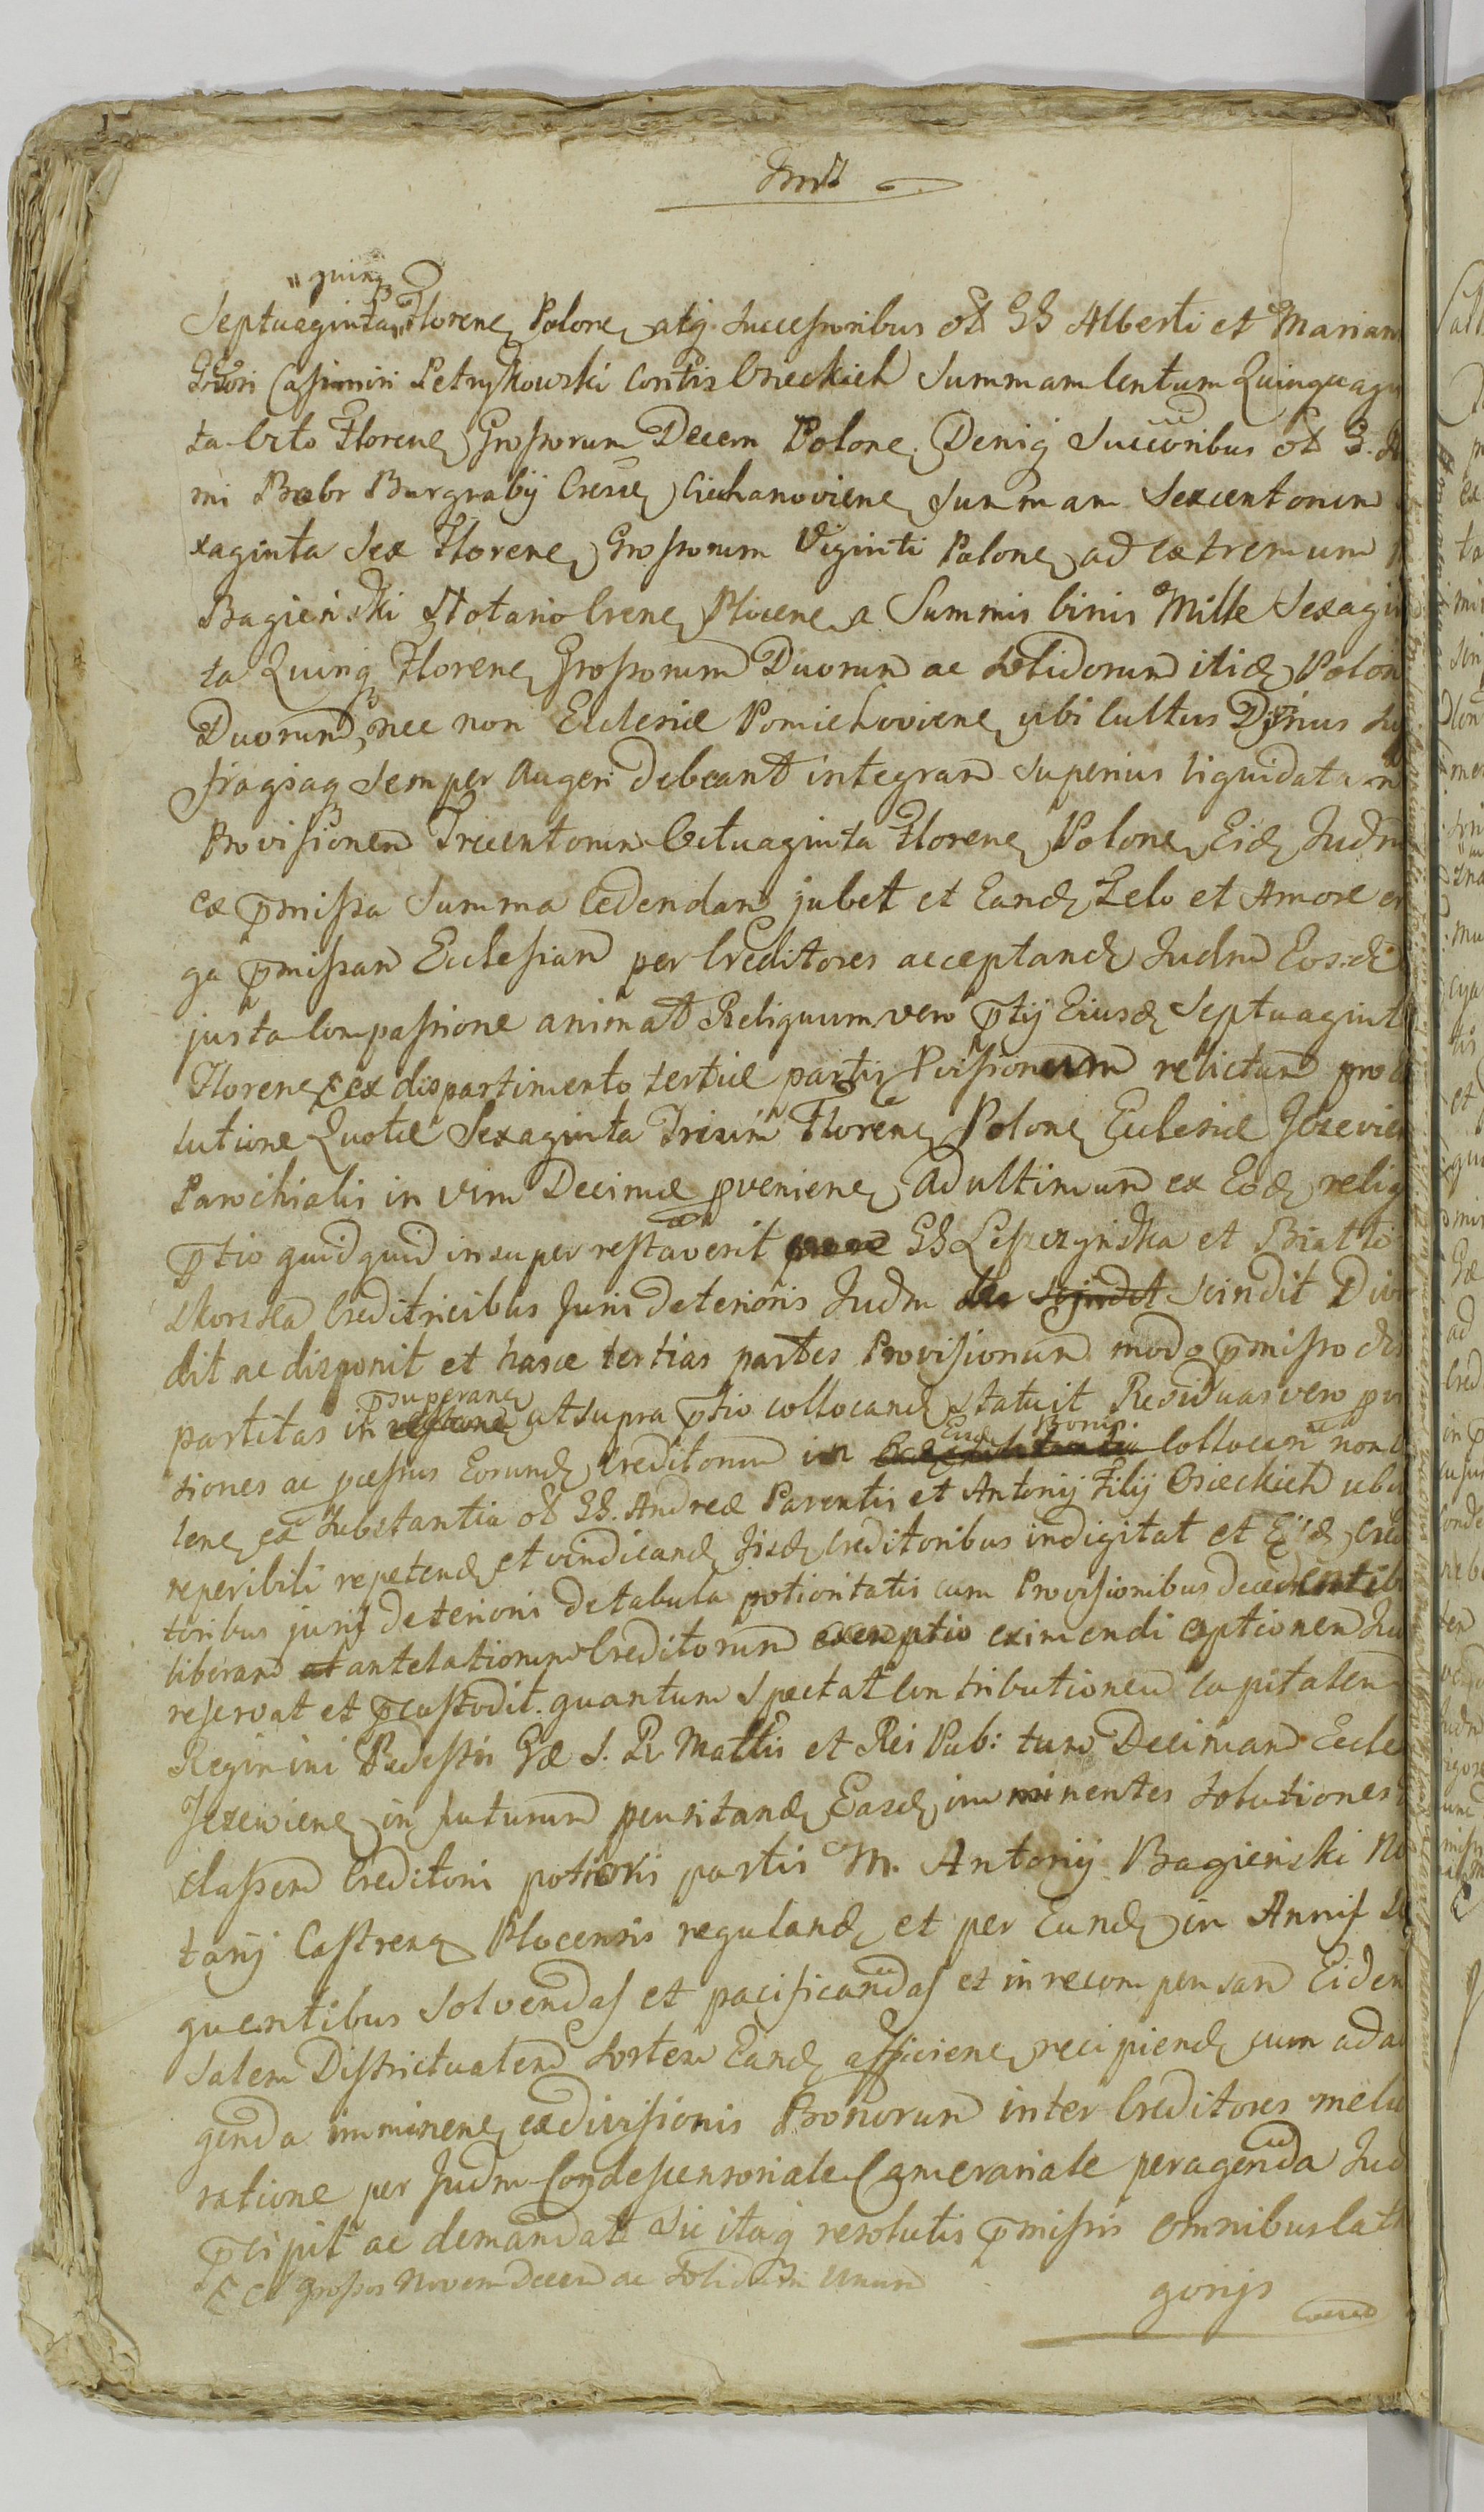 quinq
Septuaginta Florene Polone atq Successoribus ol GG Alberti et Mariann
Casimiri Petrykowski Contis Orieckich Summam Centum Quinquagin
ta Octo Florene Grossorum Decem Polone. Deniq Succoribus ol G.
mi Bobr Burgrabij Crense Ciechanoviene Summam Sexcentorum
xaginta Sex Florene Grossorum Viginti Polone ad extremum
Bagieński Notario Crene Plocene a Summis binis Mille Sexagin
ta Quinq Florene Grossorum Duorum ac Solidorum itid Polon
Duorum, nec non Eclesiæ Pomiechoviene ubi Cultus Divinus Su
fragiaq Semper Augeri debeant integram Superius liquidatam
Provisionem Trecentorum Octuaginta Florene Polone Eid Judm
ex pmissa Summa Cedendam jubet et Eand Zelo et Amore er
ga pmissam Eclesiam per Creditores acceptand Judm Eosd
justa Compassione animat Reliquum vero ptij Eiusd Septuagint
Florene ex dispartimento tertiæ partis Pvissionum relictum pro
lutione Quotæ Sexaginta Trium Florene Polone Eclesiæ Jezevien
Parochialis in vim Decimæ pveniene Ad ultimum ex Eod reliq
ptio quidquid insuper restaverit GG Leszczyńska et Biatto
skorska Creditricibus Juris deterioris Judm scindit Divi
dit ac disponit et hasce tertias partes Provisionum modo pmisso dis
psuperane
partitas in ut supra ptio collocand statuit Residuas vero pvi
Eisd Bonis.
siones ac pcessus Eorund Creditorum in Collocari non
lene ex Substantia ol GG. Andreæ Parentis et Antonij Filij Osieckich ubi
reperibili repetend et vindicand Jisd Creditoribus indigitat et Eisd Cred
toribus juris deterioris de tabula potioritatis cum Provisionibus decedentib
liberam antelationum Creditorum eximendi optionem Ju
reservat et pcustodit. quantum Spectat Contributionem Capitalem
Regimini Pedestri Gæ S. R. Mattis et Rei Pub: tum Decimam Eccle
Jezewiene in futurum pensitand Easd imminentes Solutiones
classem Creditoris potioris partis M. Antonij Bagieński No
tarij Castrens Plocensis reguland et per Eund in Annis Se
quentibus Solvendas et pacificandas et in recompensam Eiden
Salem Districtualem Sortem Eand afficiene recipiend cum ada
genda imminene exdivisionis Bonorum inter Creditores melio
ratione per Judm Condescensoriale Camerariale peragenda Jud
pcipit ac demandat Sic itaq resolutis pmissis omnibus Cath
et Grossos Novem Decem ac Solidum Unum
gorijs